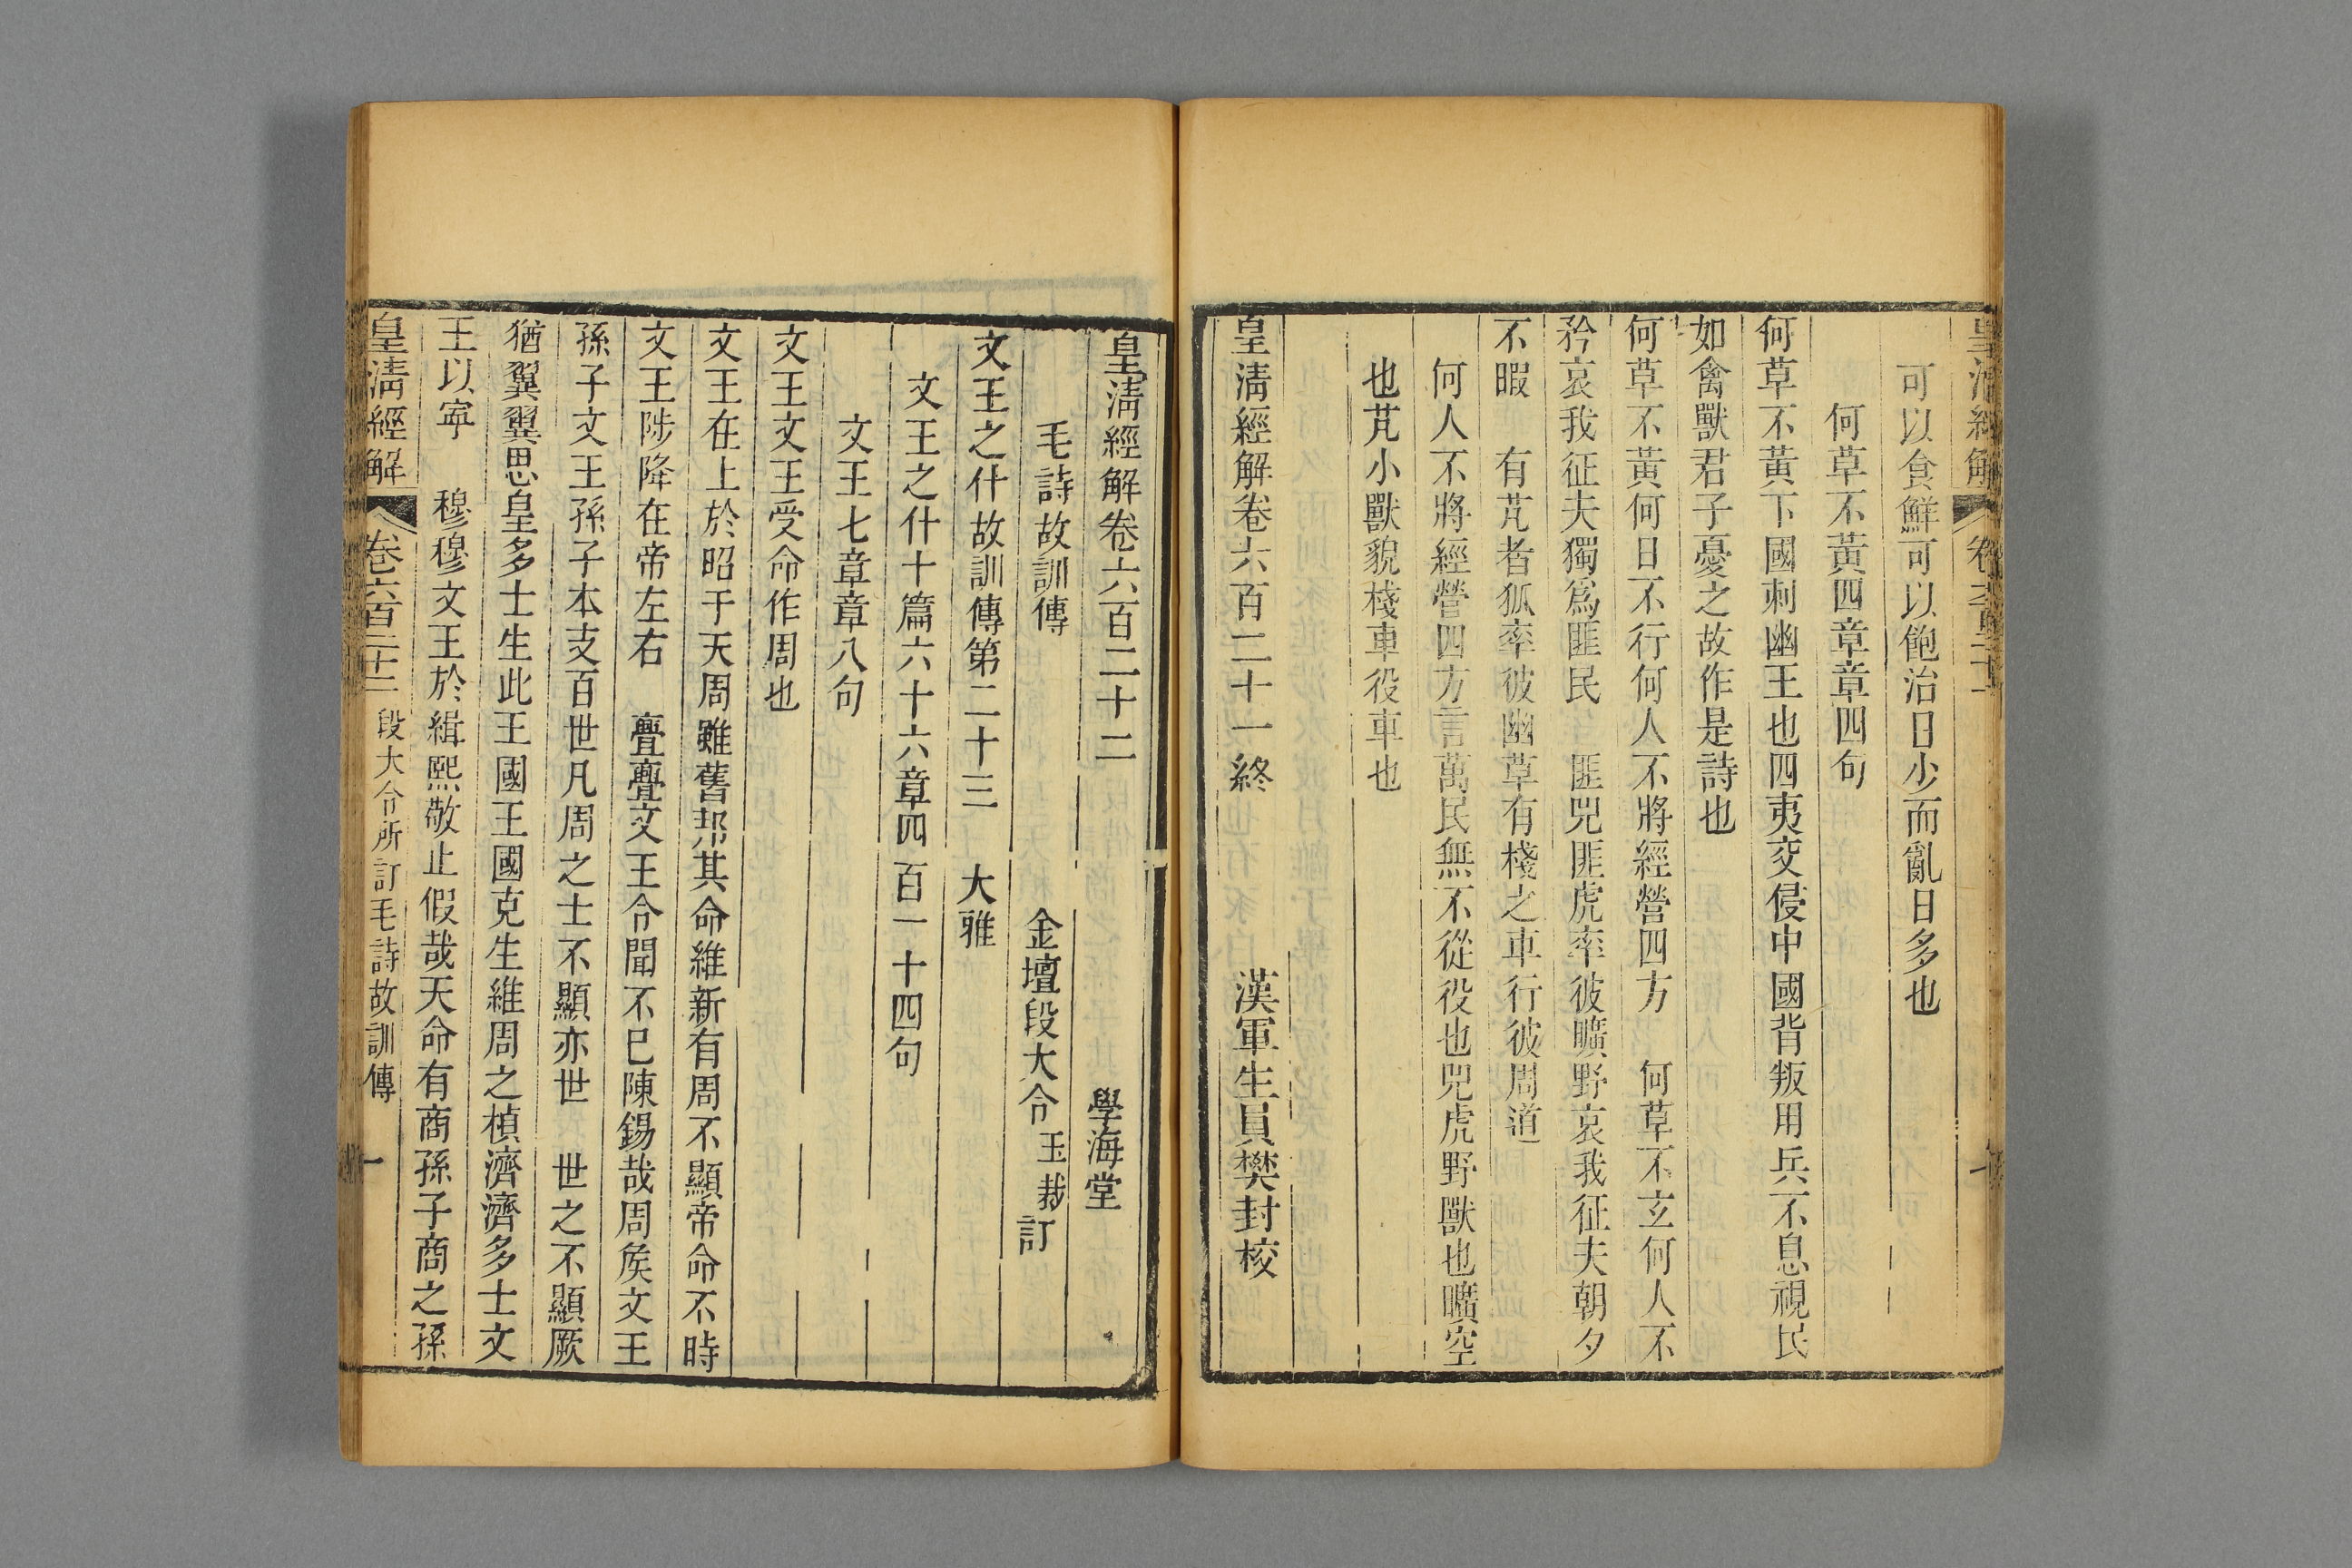 可以食鮮可以飽治日少而亂日多也
何草不黃四章章四句
何草不黃下國刺幽王也四夷交侵中國背叛用兵不息視民
如禽獸君子憂之故作是詩也
何草不黃何日不行何人不將經營四方　何草不玄何人不
矜哀我征夫獨爲匪民　匪兕匪虎率彼曠野哀我征夫朝夕
不暇　有芃者狐率彼幽草有棧之車行彼周道
何人不將經營四方言萬民無不從役也兕虎野獸也曠空
也芃小獸貌棧車役車也
皇淸經解卷六百二十一終　漢軍生員樊封校
皇淸經解卷六百二十二　學海堂
毛詩故訓傳　金壇段大令玉裁訂
文王之什故訓傳第二十三　大雅
文王之什十篇六十六章四百一十四句
文王七章章八句
文王文王受命作周也
文王在上於昭于天周雖舊邦其命維新有周不顯帝命不時
文王陟降在帝左右　亹亹文王令聞不已陳錫哉周矦文王
孫子文王孫子本支百世凡周之士不顯亦世　世之不顯厥
猶翼翼思皇多士生此王國王國克生維周之楨濟濟多士文
王以寧　穆穆文王於緝熙敬止假哉天命有商孫子商之孫
皇淸經解　卷六百二十二　段大令所訂毛詩故訓傳　一